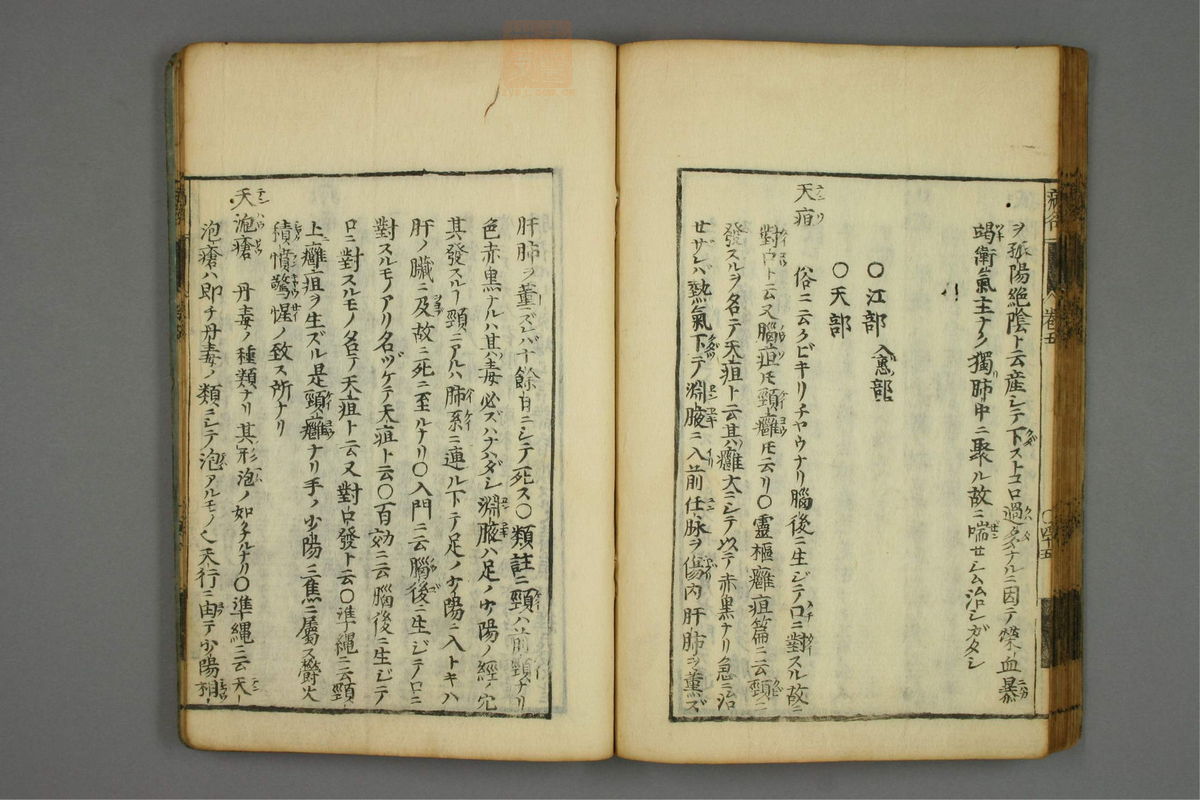 ヲ孤陽絶陰ト云産シテ下ストコロ過多ナルニ因テ榮血暴
竭衛氣主ナク獨肺中ニ聚ル故ニ喘セシム治シガタシ
〇江部
〇天部
天疽 俗ニ云クビキリチヤウナリ腦後ニ生ジテ口ニ對スル故ニ
對口ト云又腦疽モ頸癰モ云リ〇靈樞癰疽篇ニ云頸ニ
發スルヲ名テ天疽ト云其癰大ニシテ以テ赤黒ナリ急ニ治
セザレバ熱氣下テ淵腋ニ入前任脉ヲ傷内肝肺ヲ薫ズ
肝肺ヲ薫ズレバ十餘日ニシテ死ス〇類註ニ頸ハ前頸ナリ
色赤黒ナルハ其毒必ズハナハダシ淵腋ハ足ノ少陽ノ經ノ穴
其發スル頸ニアルハ肺系ニ連ル下テ足ノ少陽ニ入トキハ
肝ノ臟ニ及故ニ死ニ至ルナリ〇入門ニ云腦後ニ生ジテ口ニ
對スルモノアリ名ヅケテ天疽ト云〇百効ニ云腦後ニ生ジテ
口ニ對スルモノ名テ天疽ト云又對口發ト云〇準縄ニ云頸
上癰疽ヲ生ズル是頸癰ナリ手ノ少陽三焦ニ屬ス欝火
積憤驚惺ノ致ス所ナリ
天泡瘡 丹毒ノ種類ナリ其形泡ノ如クナルナリ〇準縄ニ云天
泡瘡ハ即チ丹毒ノ類ニシテノ泡アルモノ天行ニ由テ少陽相
新
卷五
〇四十五